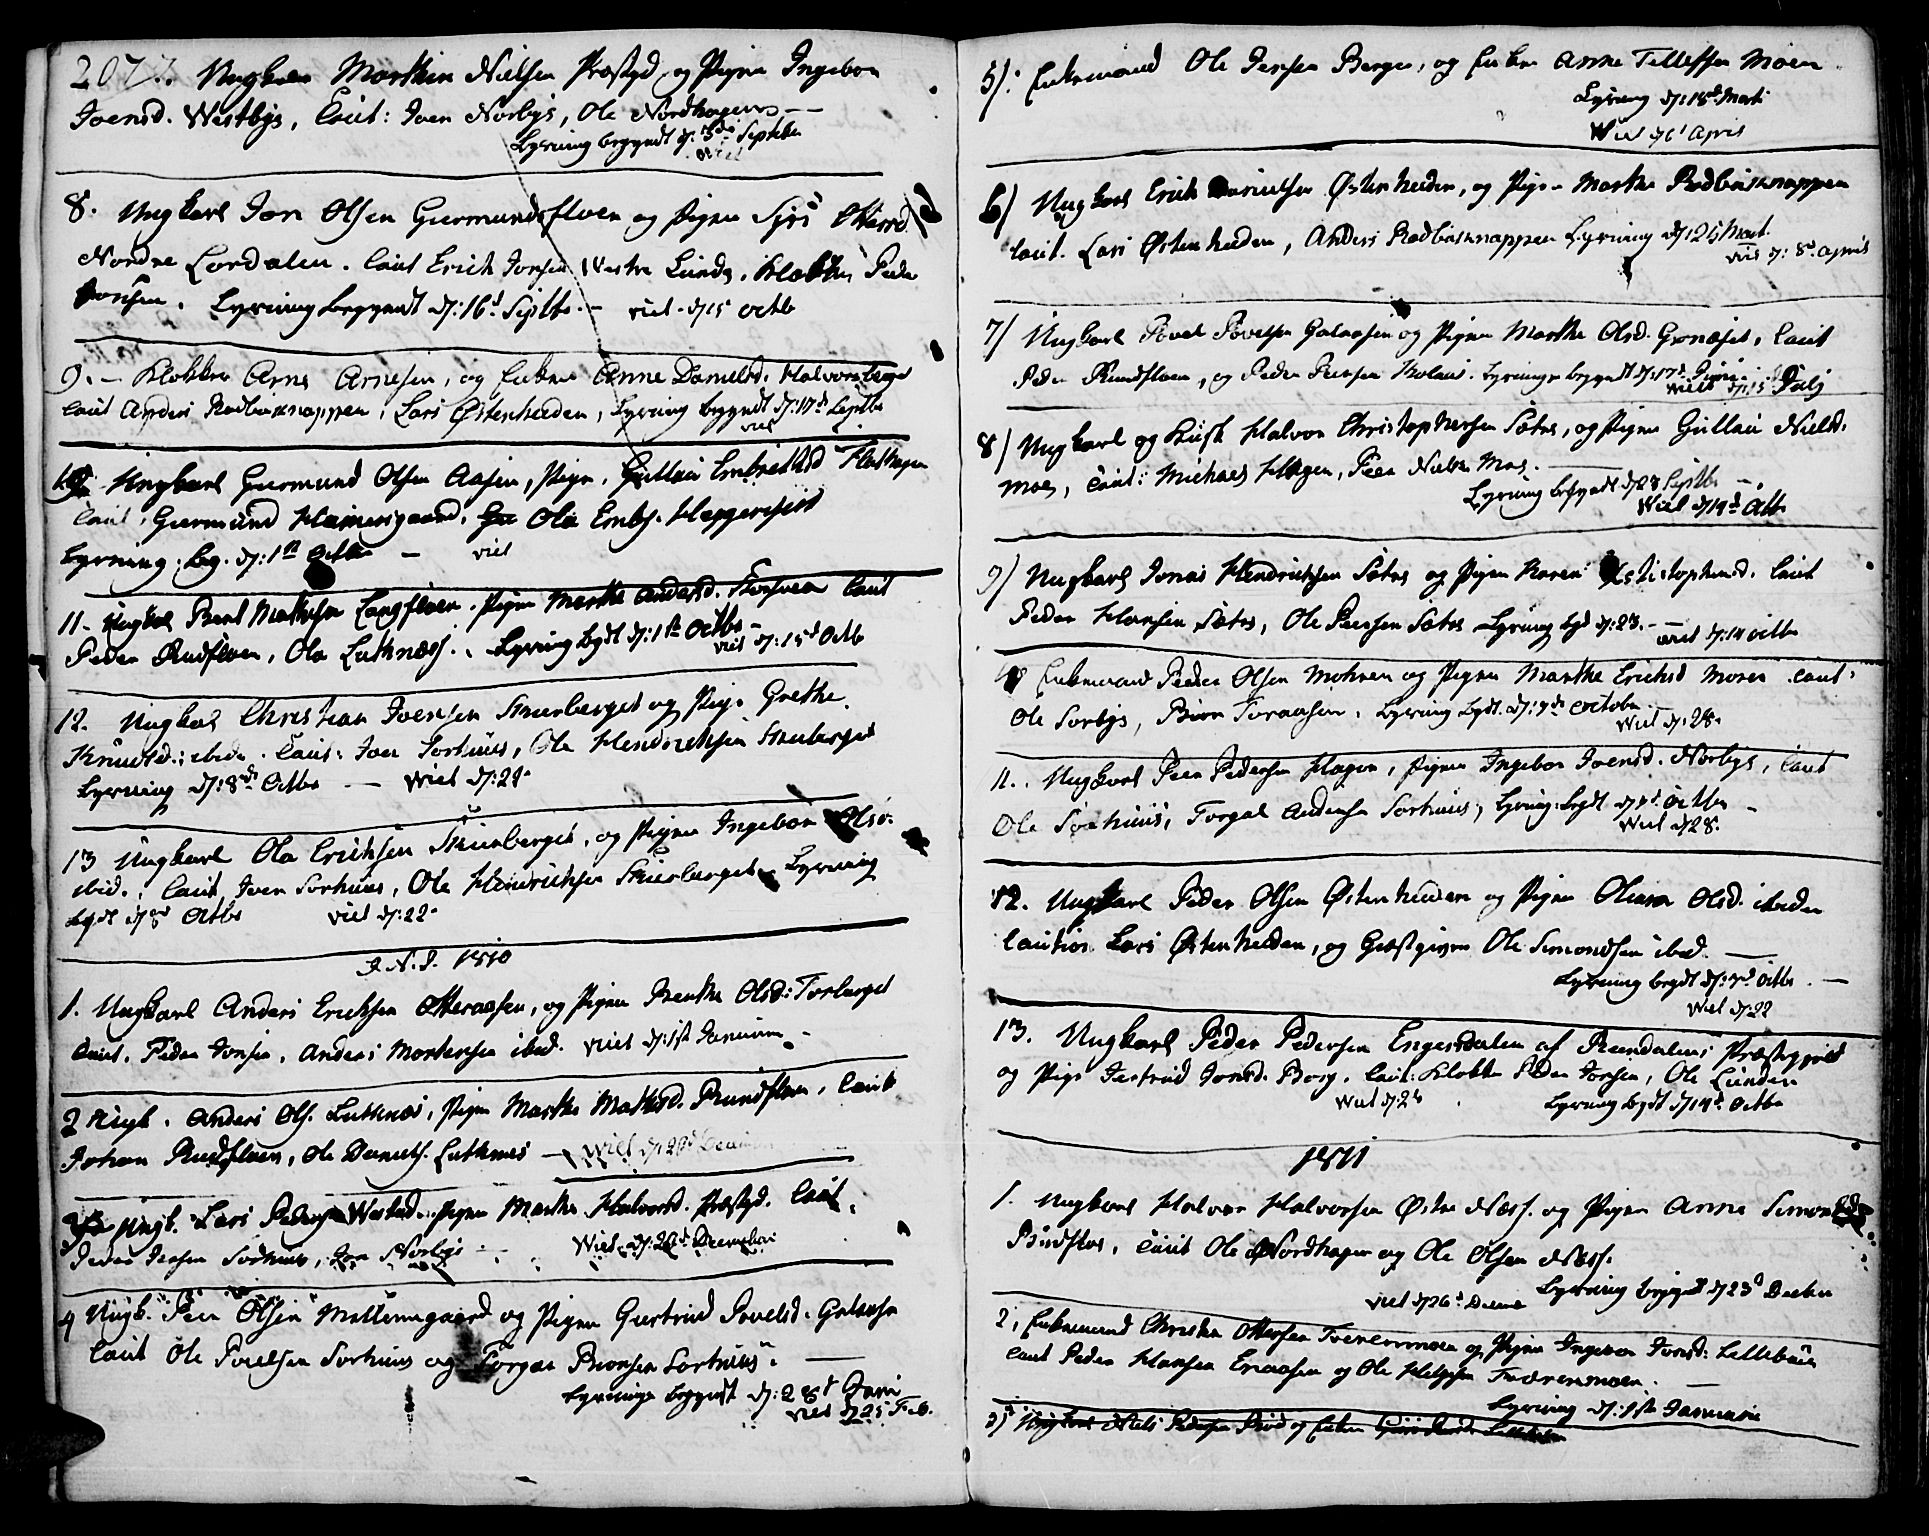 207. 7. Ungkarl Morthen Nielsen Præstgd og Pigen Ingebor
Joensd. Westbye, Caut: Joen Norbye, Ole Nordhagen —
Lysning begyndt d: Septbr
Viet
8. Ungkarl Jon Olsen Giermundsfloen og Pigen Syri Ottersd.
Nordre Lordalen. Caut Erich Jonsen Westre Lunde. Klokker Peder
Jonsen. Lysning begyndt d: 16d Septbr. — viet d 15 octb
9. — Klokker Arne Arnesen, og Enken Anne Danielsd. Halvorslege
Caut Anders Rødbæksnappen, Lars Østenheden, Lysning begyndt d: 17d Septbr
viet
10 Ungkarl Giermund Olsen Aasen, Pigen. Gulloug Embrethsd Flathagen
Caut. Giermund Heimersgaard. Ola Embs. Heggeriset
Lysning. beg. d: 1st Octbr — viet
11. Ungkarl Beret Mathisen Langfloen. Pigen Marthe Andersd. Storsveen Caut
Peder Rudfloen, Ola Lutknæss. Lysning bgdt d: 1st Octbr —
viet d: 15d Octb
12. Ungkarl Christian Joensen Skurberget og Pige Grethe
Knudsd. ibidn. Caut: Joen Sorhuus, Ole Hendrichsen Skurberget
Lysning d: 8de Octbr — Wiet d: 21.
13 Ungkarl Ola Erichsen Skurberget, og Pigen Ingebor Olsd.
ibid. Caut Joen Sorhuus, Ole Hendrichsen Skurberget — Lysning
bgdt d 8 Octbr viet d: 22.
I. N. J. 1810
1. Ungkarl Anders Erichsen Otteraasen, og Pigen Berthe Olsd: Torberget
Caut. Peder Jonsen, Anders Mortensen ibid. viet d: 1st Januarii —
2 Ungk. Anders Ols. Lutknæs, Pigen Marthe Mathisd. Rundfloen, Caut
Johan Rudfloen, Ole Daniels. Lutknæs — Wiet d: 29d Decembr
3 Ungk. Lars Peders Westad. Pigen Marthe Halvorsd. Præstgd. Caut.
Peder Jensen Sorhuus, Jon Norbye — Wiet d: 26d December
4 Ungk. Peer Olsen Mellemgaard og Pigen Giertrud Povelsd. Galaasen
Caut Ole Poulsen Sorhuus og Torger Bionsen Sorhuus. —
Lysninge begyndt d: 28d Janv
viet d 25 Feb.
5). Enkemand Ole Jensen Berger, og Enke Anne Tellefsen Moen
Lysning d: 18d Marti
Wiet d 6 April
6) Ungkarl Erich Danielsen Østenheden, og Pigen Marthe Rødbæksnappen
Caut. Lars Østenheden, Anders Rødbæksnappen Lysning d: 25 Mart.
viet d: 8d April
7) Ungkarl Povel Povelsen Galaasen og Pigen Marthe Olsd. Grønæset, Caut
Peder Rundfloen, og Peder Peersen Kolaas. Lysninge begyndt d: 17d Junii
viet d: 15 Julj
8) Ungkarl og Kusk Halvor Christophersen Sætre, og Pigen Gullau Nielsd.
Moe, Caut: Michael Hagen, Peer Nielsen Moe. —
Lysning begyndt d 28 Septbr —
Wiet d 14d Octbr
9) Ungkarl Jonas Hendrichsen Sætre og Pigen Karen Christophersd. Caut
Peder Hansen Sætre, Ole Peersen Sætre Lysning bgd d: 23. —
viet d: 14 octbr
10 Enkemand Peder Olsen Mohnen og Pigen Marthe Erichsd Moren Caut.
Ole Sorbye, Biørn Foraasen. Lysning bgdt. d: 7de October
Wiet d: 28.
11. Ungkarl Peer Pedersen Hagen, Pigen Ingebor Joensd. Norbye, Caut
Ole Sorhuus, Torgal Andersen Sorhuus, Lysning bgdt d 7d Octbr —
Wiet d 28.
12. Ungkarl Peder Olsen Østenheden og Pigen Oliana Olsd. ibiden
Caution Lars Østenheden, og Giæstgiver Ole Simondsen ibid. —
Lysning begdt d: 7d Octbr. —
Wiet d: 22
13. Ungkarl Peder Pedersen Engersdalen af Rendalens Præstegjeld
og Pige Jertrud Jonsd. Borg. Caut: Klokker Peder Jonsen, Ole Lunden
Wiet d 28 Lysning bgdt d 14d Octbr
1811
1. Ungkarl Halvor Halvorsen Østre Næss. og Pigen Anne Simonsd.
Rindfloe, Caut Ole Nordhagen og Ole Olsen Næss.
viet d 26d Decmb Lysning begyndt d 23d Decbr
2, Enkemand Christen Ottersen Trærenmoen og Pigen Ingebor Jonsd: Lillebøe
Caut Peder Hansen Eraasen og Ole Helgesen Trærenmoen. —
Lysning d: 1st Januarii
3) Ungkarl Niels Pedersen Rud og Enken